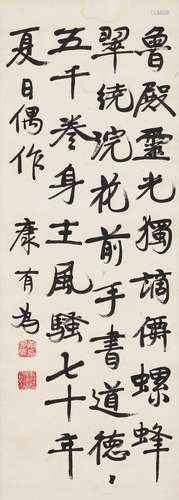 魯殿靈光獨謫儕螺蜂
翠繞浣花前手書道德、
五千卷身主風騷七十年
夏日偶作 康有為